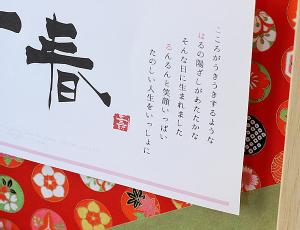 こころがうきうきするような
はるの陽ざしがあたたかな
そんな日に生まれました
るんるんと笑顔いっぱい
たのしい人生をいっしょに
春